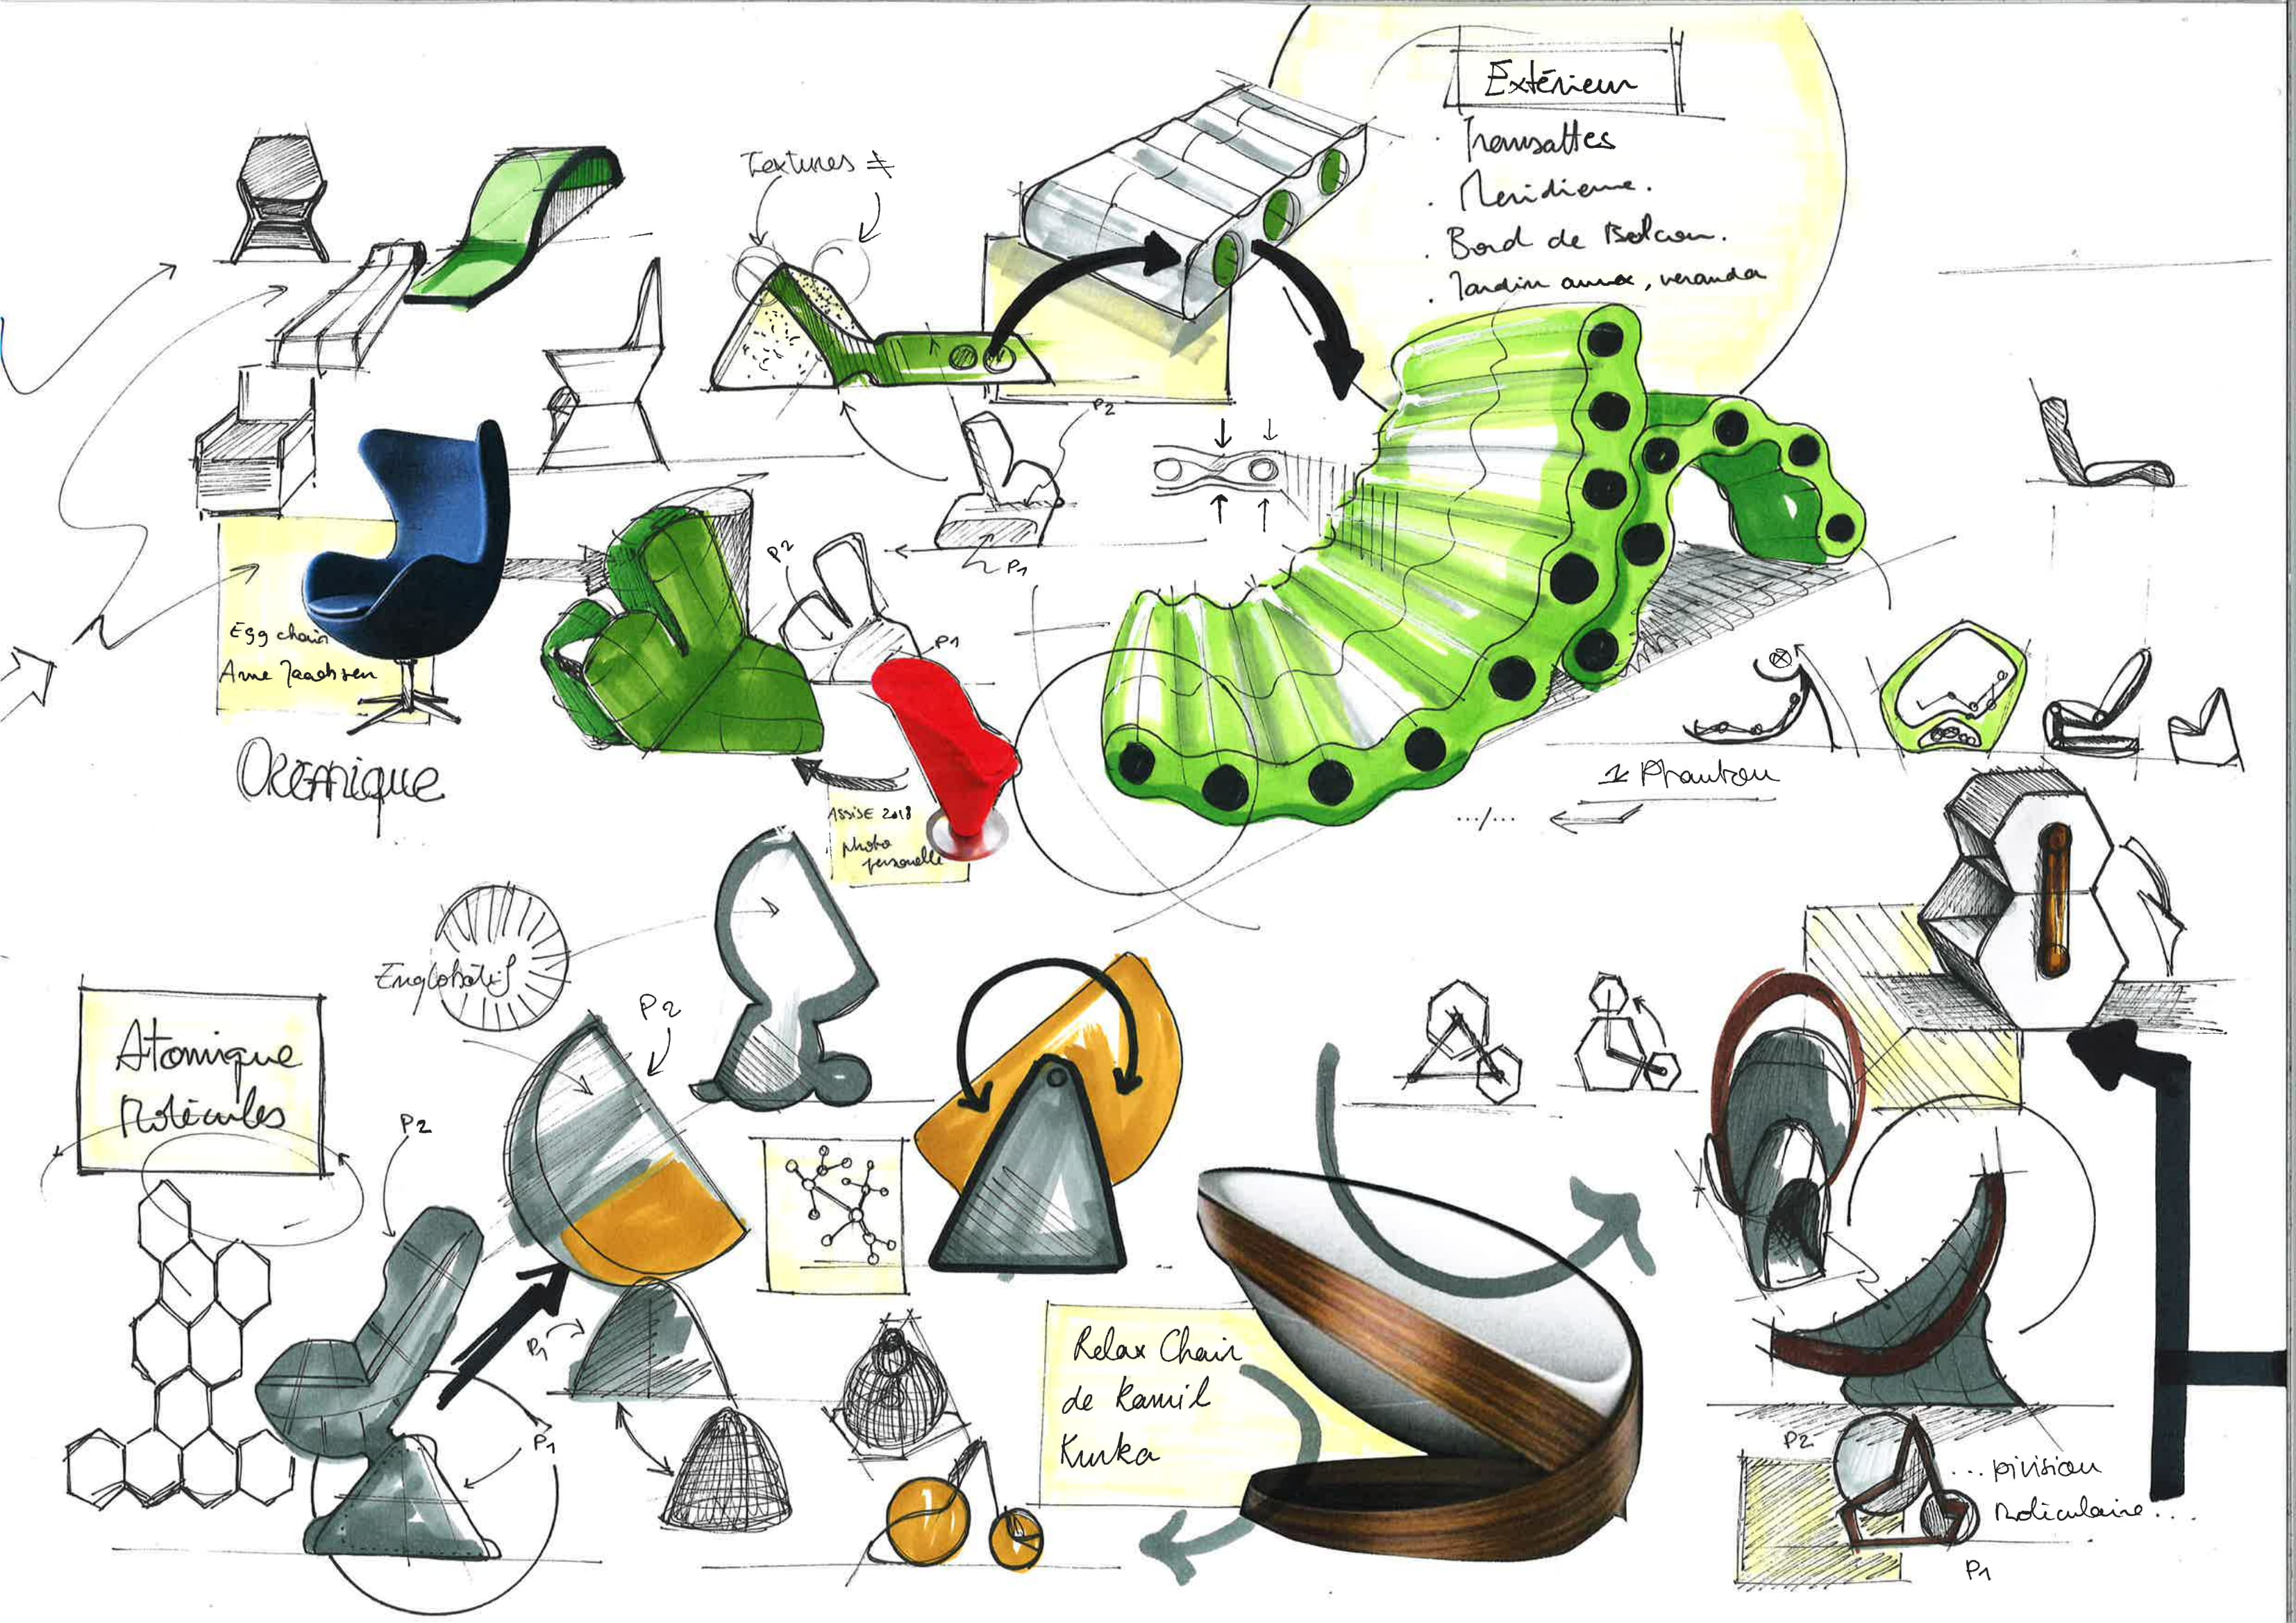 Extérieur
. Transattes
. Meridienne.
. Bord de Balcon.
. Jardin , veranda
Textures ≠
P2
P1
P2
P1
Egg chair
Arne Jacobsen
Organique
ASSISE 2018
photo
personelle
.../...
Englobatif
P2
Atomique
Molécules
P2
P1
P1
Relax Chair
de Kamil
Kurka
P2
... Division
Moléculaire...
P1